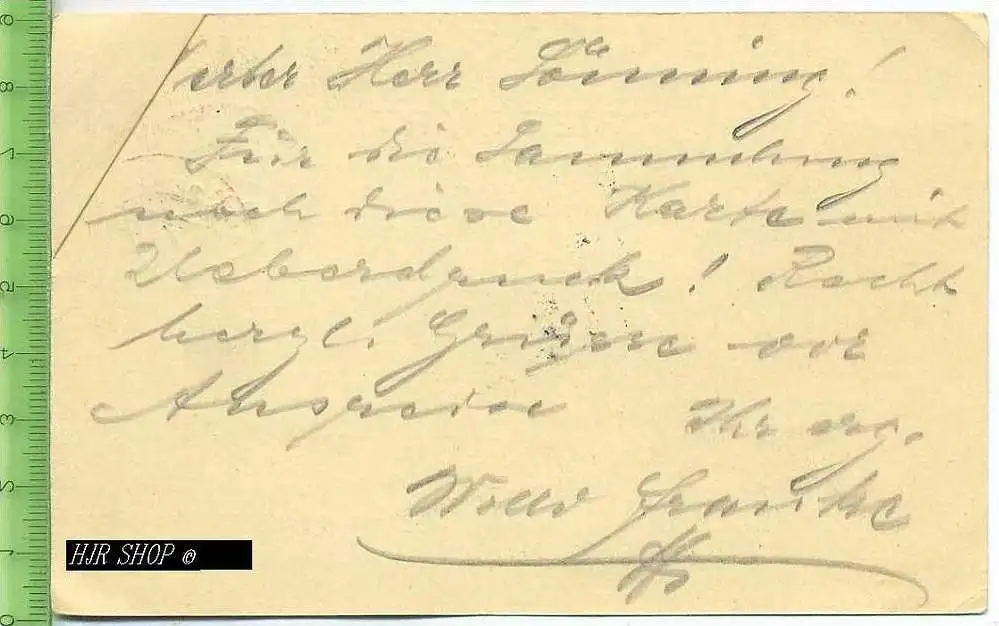 erter Herr Sönning!
Für die Sammlung
noch diese Karte mit
Ueberdruck! Recht
herzl. Grüsse vor
Ausreise Ihr erg.
Willy Franke
HJR SHOP ©
0 1 2 3 4 5 6 7 8 9